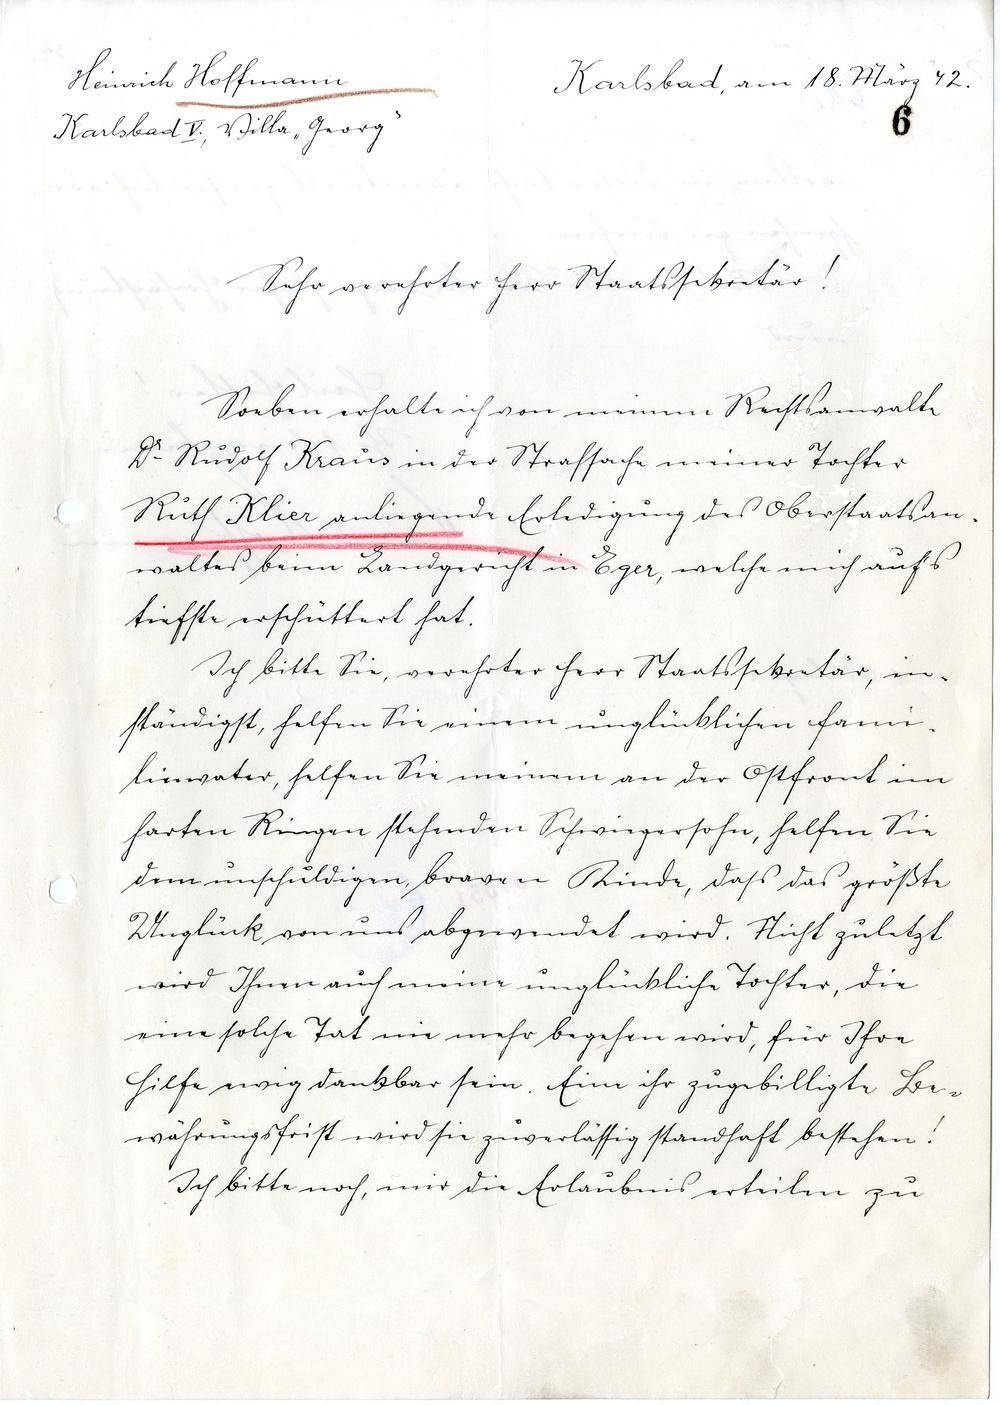 Heinrich Hoffmann
Karlsbad, am 18. März 42.
Karlsbad V., Villa „Georg"
6
Sehr verehrter Herr Staatssekretär!
Soeben erhalte ich von meinem Rechtsanwalte
Dr. Rudolf Kraus in der Strafsache meiner Tochter
Ruth Klier anliegende Erledigung des Oberstaatsan-
waltes beim Landgericht in Eger, welche mich aufs
tiefste erschüttert hat.
Ich bitte Sie, verehrter Herr Staatssekretär, in-
ständigst, helfen Sie einem unglücklichen Fami-
lienvater, helfen Sie meinem an der Ostfront im
harten Ringen stehenden Schwiegersohn, helfen Sie
dem unschuldigen, braven Kinde, dass das größte
Unglück von uns abgewendet wird. Nicht zuletzt
wird Ihnen auch meine unglückliche Tochter, die
eine solche Tat nie mehr begehen wird, für Ihre
Hilfe ewig dankbar sein. Eine ihr zugebilligte Be-
währungsfrist wird sie zuverlässig standhaft bestehen!
Ich bitte noch, mir die Erlaubnis erteilen zu